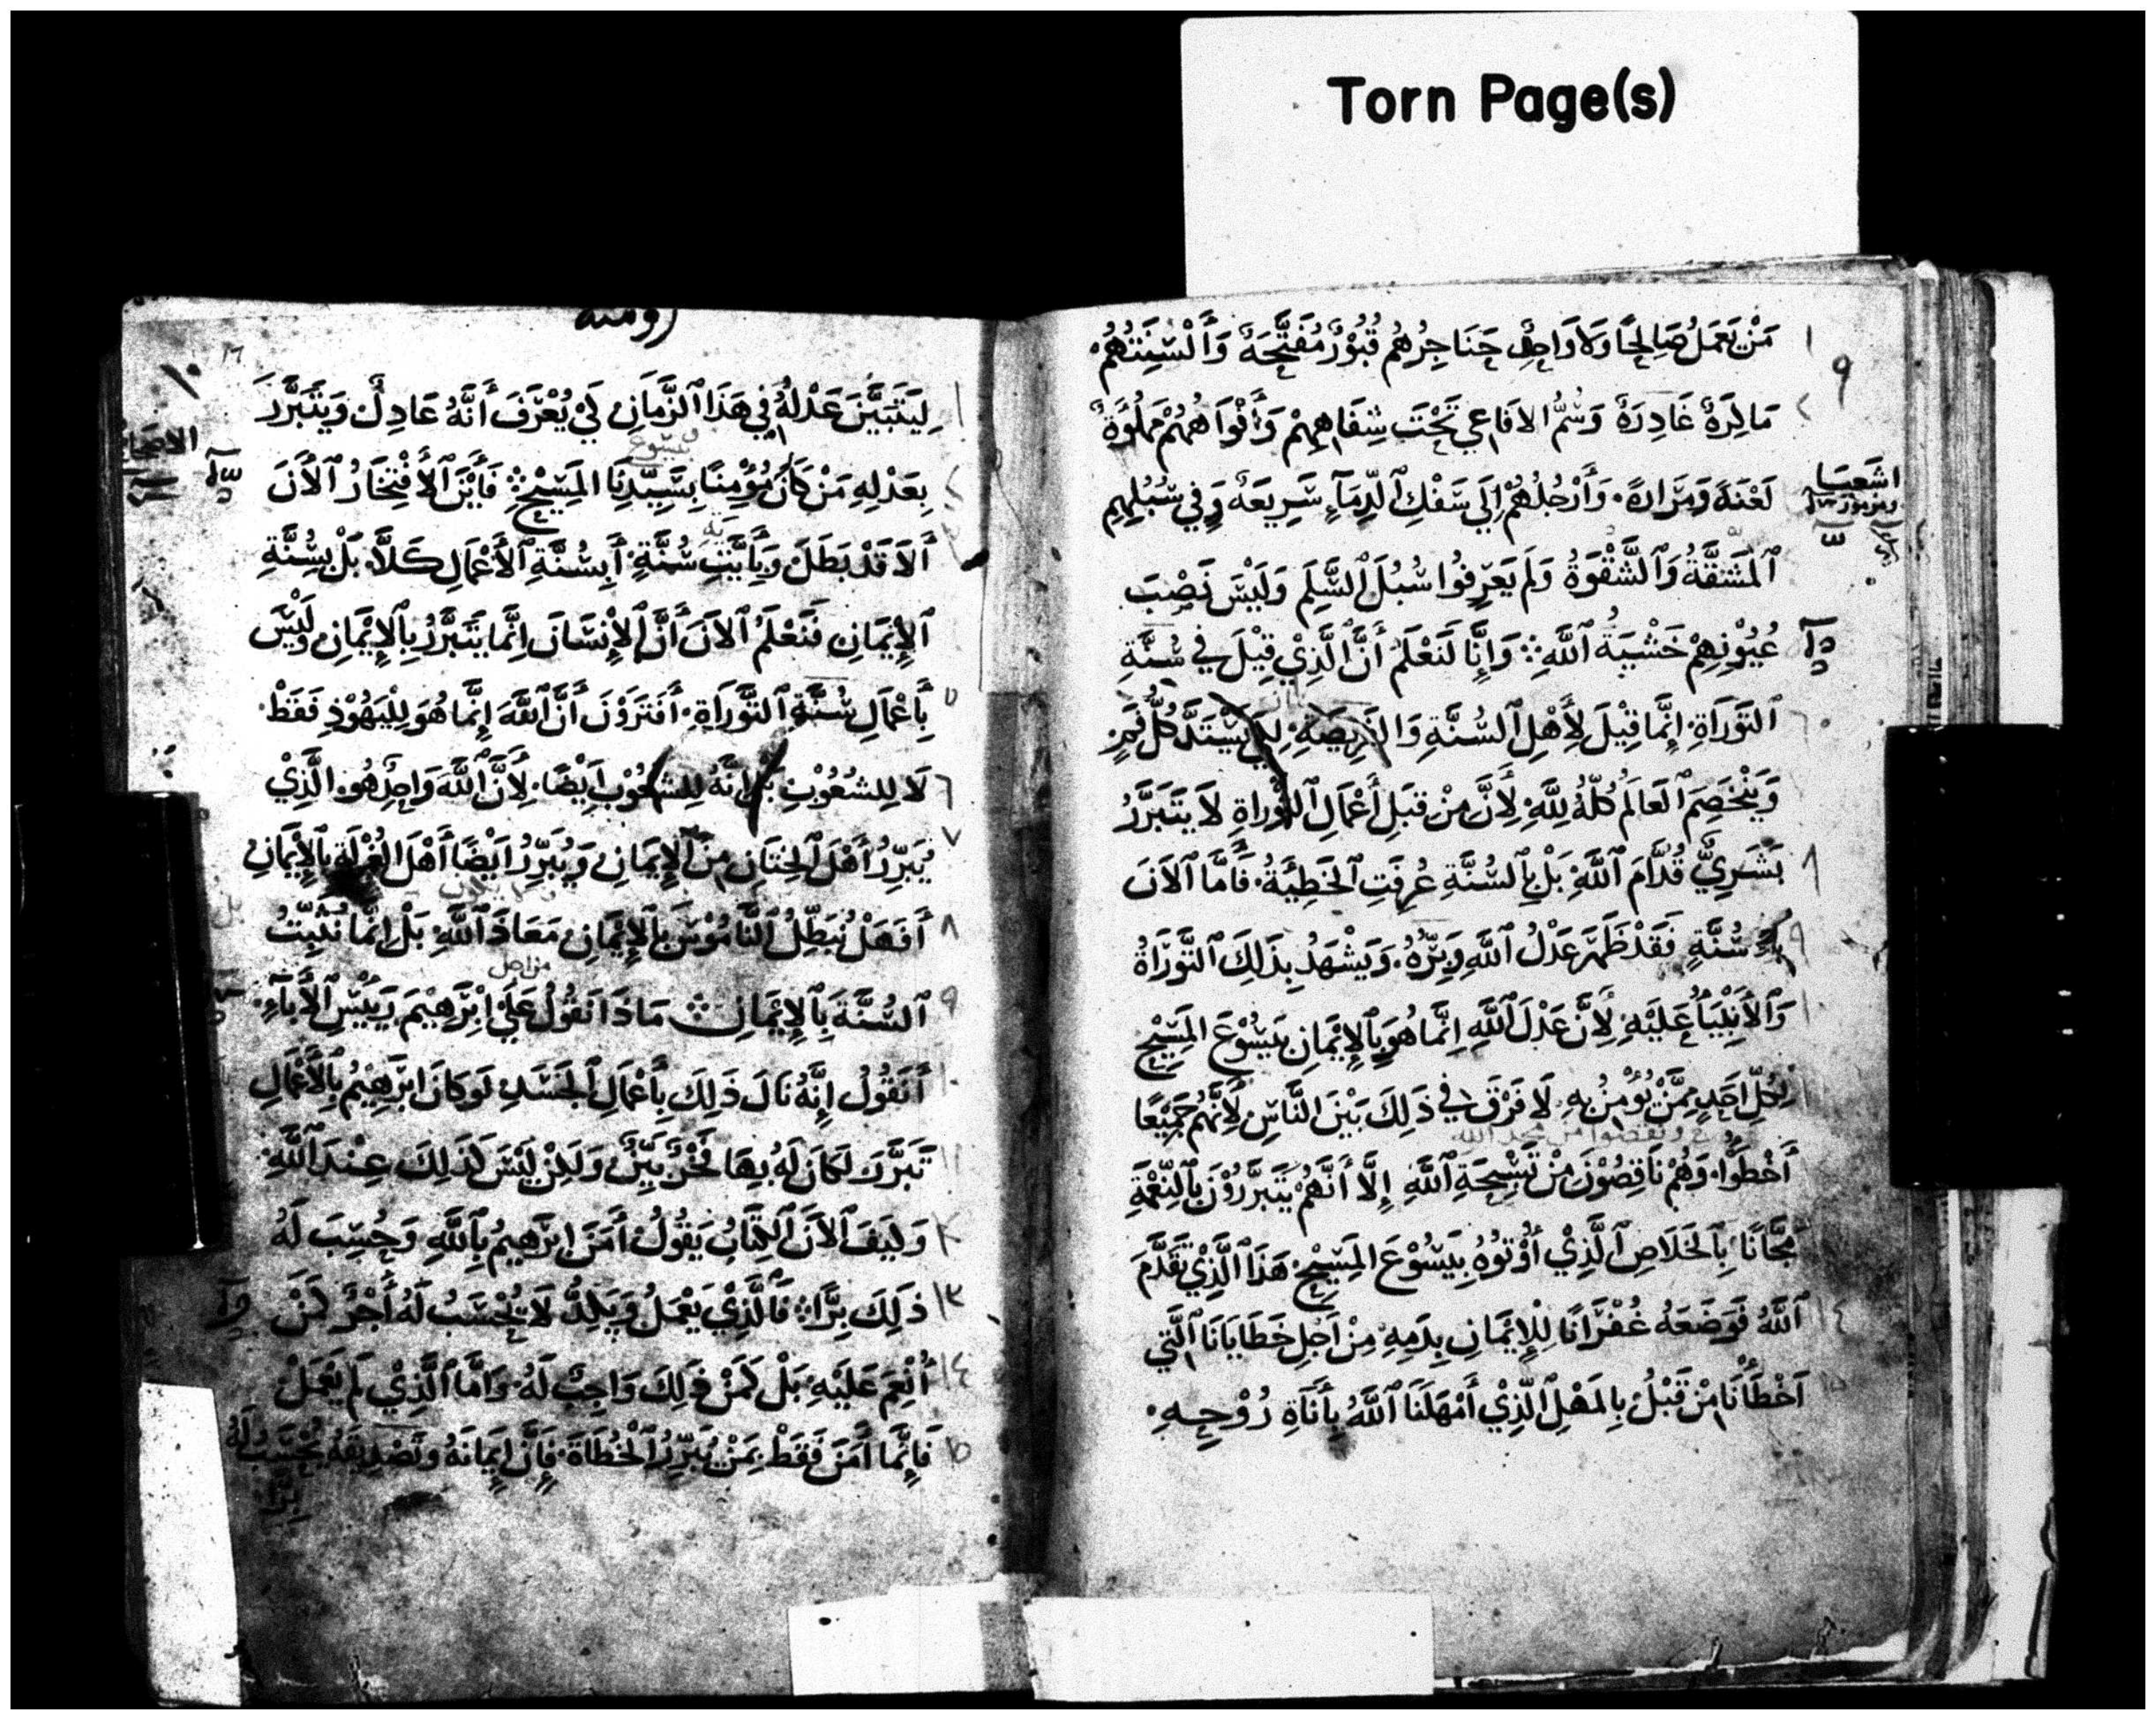 Torn Page(s)
مَنْ يَعْمَلُ صَالِحًا وَلَا وَاحِدٌ حَنَاجِرُهُمْ قُبُوْرٌ مُفَتَّحَةٌ وَأَلْسِنَتُهُمْ
مَاكِرَةٌ غَادِرَةٌ وَسُمُّ الافَاعِي تَحْتَ شِفَاهِهِمْ وَأَفْوَاهُهُمْ مَمْلُوَّةٌ
لَعْنَةً وَمَرَارَةً. وَأَرْجُلُهُمْ إِلَي سَفْكِ ٱلدِّمَآءِ سَرِيعَةٌ وَفِي سُبُلِهِمِ
ٱلْمَشَقَّةُ وَٱلشَّقْوَةُ وَلَمْ يَعْرِفُوا سُبُلَ ٱلسَّلِمِ وَلَيْسَ نَصْبَ
عُيُوْنِهِمْ خَشْيَةُ ٱللَّهِ وَإِنَّا لَنَعْلَمُ أَنَّ ٱلَّذِيْ قِيْلَ فِي سُنَّةِ
ٱلتَّوْرَاةِ. إِنَّمَا قِيْلَ لِأَهْلِ ٱلسُّنَّةِ وَالفَرِيضَةِ. لِكَي يَسْتَدَّ كُلُّ فَمٍ
وَيَنْخَصِمَ ٱلعَالَمُ كُلُّهُ لِلَّهِ لِأَنَّ مِنْ قِبَلِ أَعْمَالِ ٱلتَّوْرَاةِ لَا يَتَبَرَّرُ
بَشَرِيٌّ قُدَّامَ ٱللَّهِ بَلْ بِٱلسُّنَّةِ عُرِفَتِ ٱلخَطِيَّةُ. فَأَمَّا ٱلآنَ
سُنَّةٍ فَقَدْ ظَهَرَ عَدْلُ ٱللَّهِ وَبِرُّهُ. وَيَشْهَدُ بِذَلِكَ ٱلتَّوْرَاةُ
وَٱلأَنْبِيَاءُ عَلَيْهِ لِأَنَّ عَدْلَ ٱللَّهِ إِنَّمَا هُوَ بِٱلإِيْمَانِ بِيَسُوْعَ المَسِيْحِ
لِكُلِّ احَدٍ مِمَّنْ يُؤْمِنُ بِهِ لَا فَرْقَ فِي ذَلِكَ بَيْنَ النَّاسِ لِأَنَّهُمْ جَمِيْعًا
أَخْطَوْا. وَهُمْ نَاقِصُوْنَ مِنْ تَسْبِحَةِ ٱللَّهِ إِلَّا أَنَّهُمْ يَتَبَرَّرُوْنَ بِٱلنِّعْمَةِ
مَجَّانًا بِٱلخَلَاصِ ٱلَّذِيْ أُوْتُوْهُ بِيَسُوْعَ المَسِيْحِ. هَذَا ٱلَّذِيْ تَقَدَّمَ
ٱللَّهُ فَوَضَعَهُ غُفْرَانًا لِلْإِيْمَانِ بِدَمِهِ مِنْ اَجْلِ خَطَايَانَا ٱلَّتِي
اَخْطَأْنَا مِنْ قَبْلُ بِالمَهْلِ ٱلَّذِيْ أَمْهَلَنَا ٱللَّهُ بِأَنَاةِ رُوْحِهِ.
اشعيا
رومية
لِيَتَبَيَّنَ عَدْلُهُ فِي هَذَا ٱلزَّمَانِ لَكِي يُعْرَفَ أَنَّهُ عَادِلٌ وَيَتَبَرَّرَ
يسوع
بِعَدْلِهِ مَنْ كَانَ مُؤْمِنًا بِسَيِّدِنَا المَسِيْحِ فَأَيْنَ ٱلأَفْتِخَارُ ٱلأَنَ
أَلَا قَدْ بَطَلَ وَبِأَيَّتِ سُنَّةٍ. أَبِسُنَّةِ ٱلأَعْمَالِ كَلَّا. بَلْ بِسُنَّةِ
ٱلإِيْمَانِ فَنَعْلَمُ ٱلآنَ أَنَّ ٱلإِنْسَانَ إِنَّمَا يَتَبَرَّرُ بِٱلإِيْمَانِ وَلَيْسَ
بِأَعْمَالِ سُنَّةِ ٱلتَّوْرَاةِ. أَفَتَرَوْنَ أَنَّ ٱللَّهَ إِنَّمَا هُوَ لِلْيَهُوْدِ فَقَطْ.
لَا لِلشُعُوْبِ بَلْ إِنَّهُ لِلشُعُوْبِ اَيْضًا. لِأَنَّ ٱللَّهَ وَاحِدٌ هُوَ الَّذِيْ
يُبَرِّرُ أَهْلَ ٱلخِتَانِ مِنَ ٱلإِيْمَانِ وَيُبَرِّرُ اَيْضًا أَهْلَ الغُرْلَةِ بِٱلإِيْمَانِ
أَفَهَلْ نُبَطِّلُ ٱلنَّامُوْسَ بِٱلإِيْمَانِ مَعَاذَ ٱللَّهِ بَلْ اِنَّمَا نُثَبِّتُ
ٱلسُّنَّةَ بِٱلإِيْمَانِ مَاذَا نَقُوْلُ عَلَيَ اِبْرَهِيْمَ رَئِيْسِ ٱلأَبَآءِ.
أَنَقُوْلُ إِنَّهُ نَالَ ذَلِكَ بِأَعْمَالِ ٱلجَسَدِ لَوكَانَ ابْرَهِيْمُ بِٱلأَعْمَالِ
تَبَرَّرَ لَكَانَ لَهُ بِهَا فَخْرٌ بَيِّنٌ وَلَكِنْ لَيْسَ كَذَلِكَ عِنْدَ ٱللَّهِ.
وَكَيفَ ٱلآنَ ٱلكِتَابُ يَقُوْلُ أَمَنَ ابْرَهِيمُ بِٱللَّهِ وَحُسِبَ لَهُ
ذَلِكَ بِرًّا فَالَّذِيْ يَعْمَلُ وَيَكِدُّ لَا يُحْسَبُ لَهُ أَجْرٌ كَمَنْ
أُنْعِمَ عَلَيْهِ بَلْ كَمَنْ ذَلِكَ وَاجِبٌ لَهُ. وَامَّا ٱلَّذِيْ لَمْ يَعْمَلْ
فَإِنَّمَا أَمَنَ فَقَطْ بِمَنْ يُبَرِّرُ ٱلْخُطَاةَ. فَإِنَّ إِيْمَانَهُ وَتَصْدِيقَهُ يُحْسَبُ لَهُ
بِرًّا